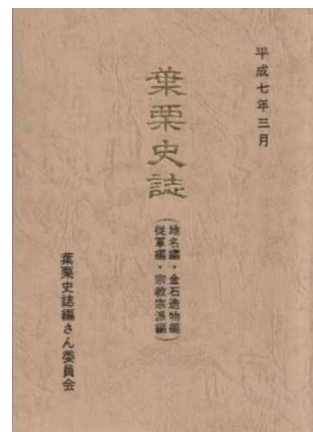 平成七年三月
葉栗史誌
(地名編・金石造物編
従軍編・宗教宗派編)
葉栗史誌編さん委員会